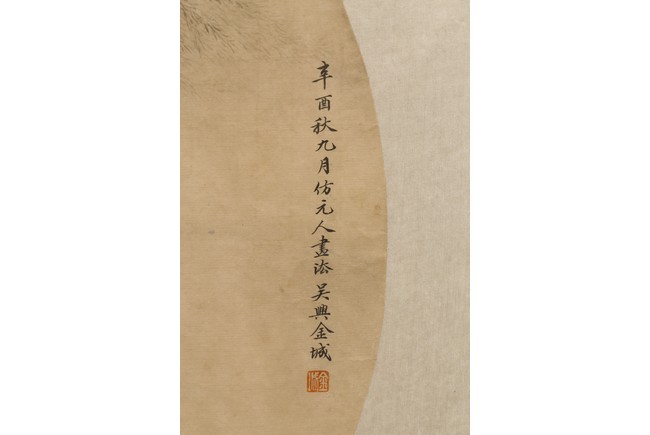 辛酉秋九月仿元人畫法吴興金城